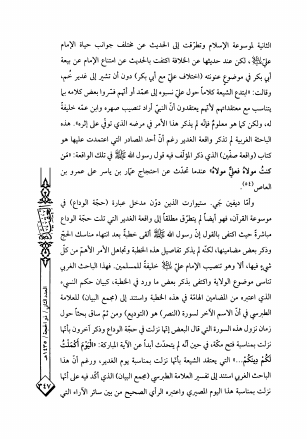 الثانية لموسوعة الإسلام وتطرّقت إلى الحديث عن مختلف جوانب حياة الإمام
عليّ، لكن عند حديثها عن الخلافة اكتفت بالحديث عن امتناع الإمام عن بيعة
أبي بكر في موضوع عنونته (اختلاف عليّ مع أبي بكر) دون أن تشير إلى غدير خُم،
وقالت: «ابتدع الشيعة كلاماً حول عليّ نسبوه إلى محمّد أو أنّهم فسّروا بعض كلامه بما
يتناسب مع معتقداتهم لأنّهم يعتقدون أنّ النبيّ أراد تنصيب صهره وابن عمّه خليفةً
له، ولكن كما هو معلومٌ فإنّه لم يذكر هذا الأمر في مرضه الذي توفّي على إثره». هذه
الباحثة الغربية لم تذكر واقعة الغدير رغم أنّ أحد المصادر التي اعتمدت عليها هو
كتاب (واقعة صفّين) الذي ذكر المؤلّف فيه قول رسول الله ﷺ في تلك الواقعة: «مَن
كنتُ مولاهُ فعليٌّ مولاهُ» عندما تحدّث عن احتجاج عمّار بن ياسر على عمرو بن
العاص(٥٤).
وأمّا ديفين جي. ستيوارت الذين دوّن مدخل عبارة (حجّة الوداع) في
موسوعة القرآن، فهو أيضاً لم يتطرّق مطلقاً إلى واقعة الغدير التي تلت حجّة الوداع
مباشرةً حيث اكتفى بالقول إنّ رسول الله ﷺ ألقى خطبةً بعد انتهاء مناسك الحجّ
وذكر بعض مضامينها، لكنّه لم يذكر تفاصيل هذه الخطبة وتجاهل الأمر الأهمّ من كلّ
شيءٍ فيها، ألا وهو تنصيب الإمام عليّ خليفةً للمسلمين. فهذا الباحث الغربي
تناسى موضوع الولاية واكتفى بذكر بعض ما ورد في الخطبة، كبيان حكم النسيء
الذي اعتبره من المضامين الهامّة في هذه الخطبة واستند إلى (مجمع البيان) للعلامة
الطبرسي في أنّ الاسم الآخر لسورة (النصر) هو (التوديع) ومن ثمّ ساق بحثاً حول
زمان نزول هذه السورة التي قال البعض إنّها نزلت في حجّة الوداع وذكر آخرون بأنّها
نزلت بمناسبة فتح مكّة، في حين أنّه لم يتحدّث أبداً عن الآية المباركة: «الْيَوْمَ أَكْمَلْتُ
لَكُمْ دِينَكُمْ...» التي يعتقد الشيعة بأنّها نزلت بمناسبة يوم الغدير، ورغم أنّ هذا
الباحث الغربي استند إلى تفسير العلامة الطبرسي (مجمع البيان) الذي أكّد فيه على أنّها
نزلت بمناسبة هذا اليوم المصيري واعتبره الرأي الصحيح من بين سائر الآراء التي
العدد الثاني / ذو الحجة / ١٤٣٥هـ
٣٤٧